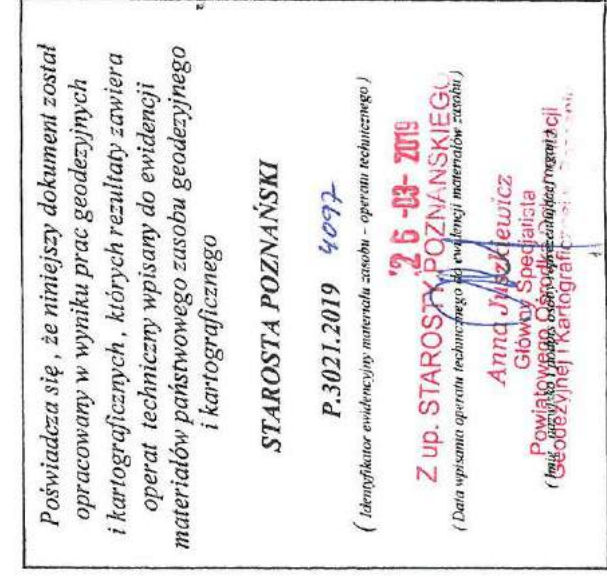 Poświadcza się , że niniejszy dokument został
opracowany w wyniku prac geodezyjnych
i kartograficznych , których rezultaty zawiera
operat techniczny wpisany do ewidencji
materiałów państwowego zasobu geodezyjnego
i kartograficznego
STAROSTA POZNAŃSKI
P.3021.2019 4097
( Identyfikator ewidencyjny materiału zasobu - operatu technicznego )
26 -03- 2019
Z up. STAROSTY POZNAŃSKIEGO
( Data wpisania operatu technicznego do ewidencji materiałów zasobu )
Anna Juszkiewicz
Główny Specjalista
Powiatowego Ośrodka Dokumentacji
( Imię nazwisko i podpis osoby reprezentującej organ )
Geodezyjnej i Kartograficznej